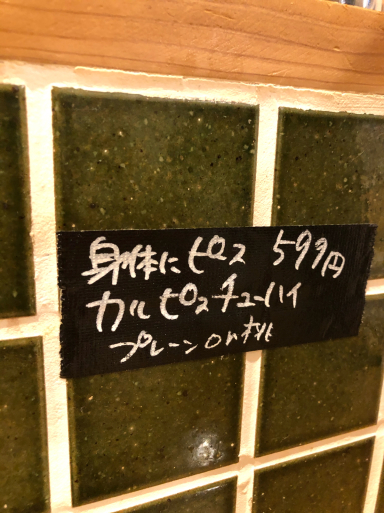 身体にピス 599円
カルピスチューハイ
プレーンor桃